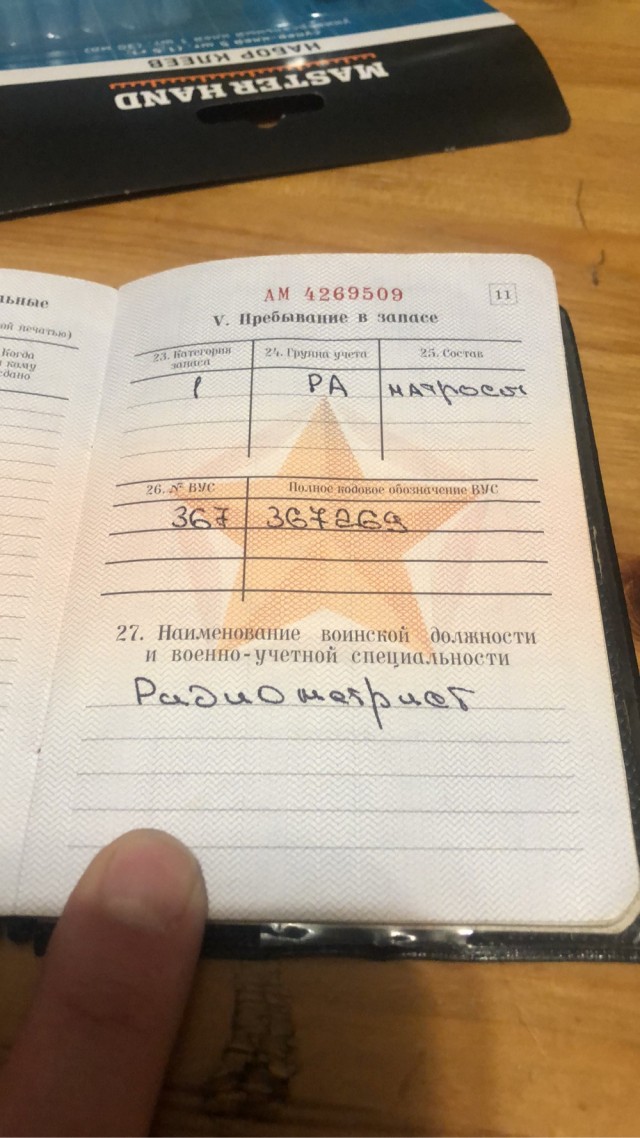 MASTER HAND
НАБОР КЛЕЕВ
льные
ой печатью)
Когда
и кому
сдано
АМ 4269509
11
V. Пребывание в запасе
23. Категория запаса
24. Группа учета
25. Состав
1
РА
матросы
26. № ВУС
Полное кодовое обозначение ВУС
367
367269
27. Наименование воинской должности
и военно-учетной специальности
Радиометрист